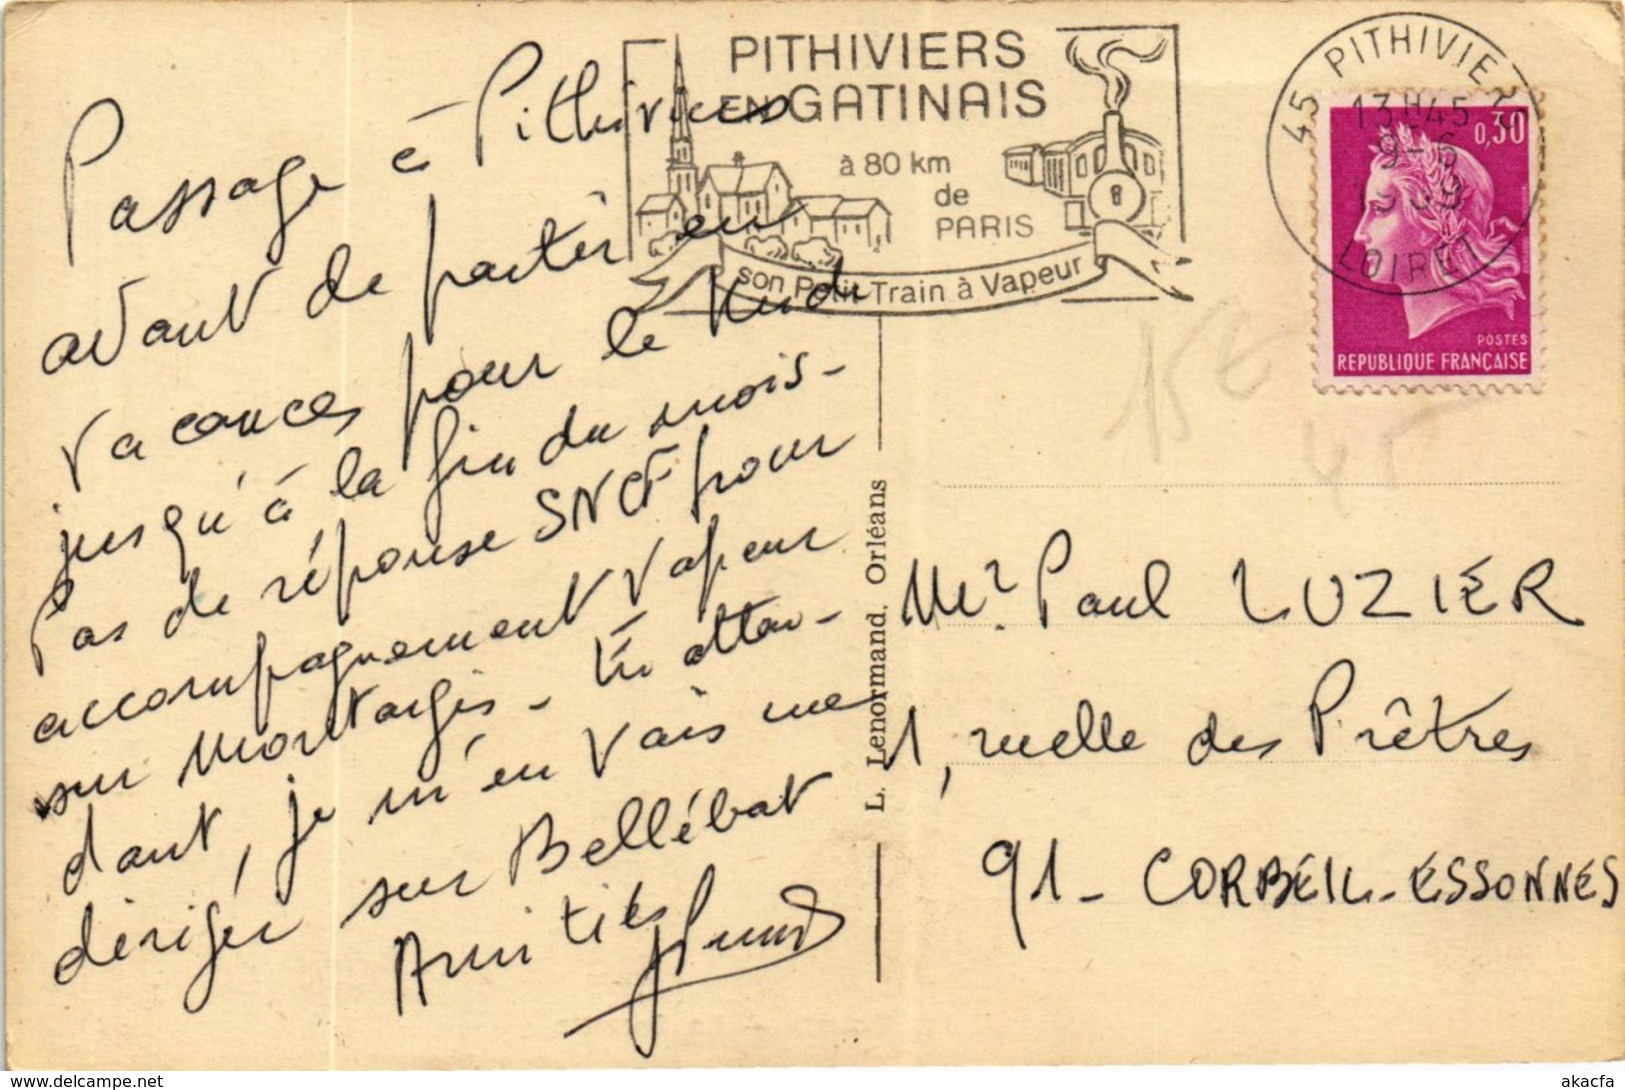 Passage à Pithiviers
avant de partir en
vacances pour le Midi
jusqu'à la fin du mois-
Pas de réponse SNCF pour
accompagnement vapeur
sur Montargis - En atten-
dant, je m'en vais me
diriger sur Bellébat
Amitiés
PITHIVIERS
EN GATINAIS
à 80 km
de
PARIS
son Petit Train à Vapeur
45 PITHIVIERS
13H45
9-6
1969
LOIRET
0,30
POSTES
REPUBLIQUE FRANÇAISE
15€
45
L. Lenormand, Orléans
Mr Paul LUZIER
1, ruelle des Prêtres
91 - CORBEIL-ESSONNES
akacfa